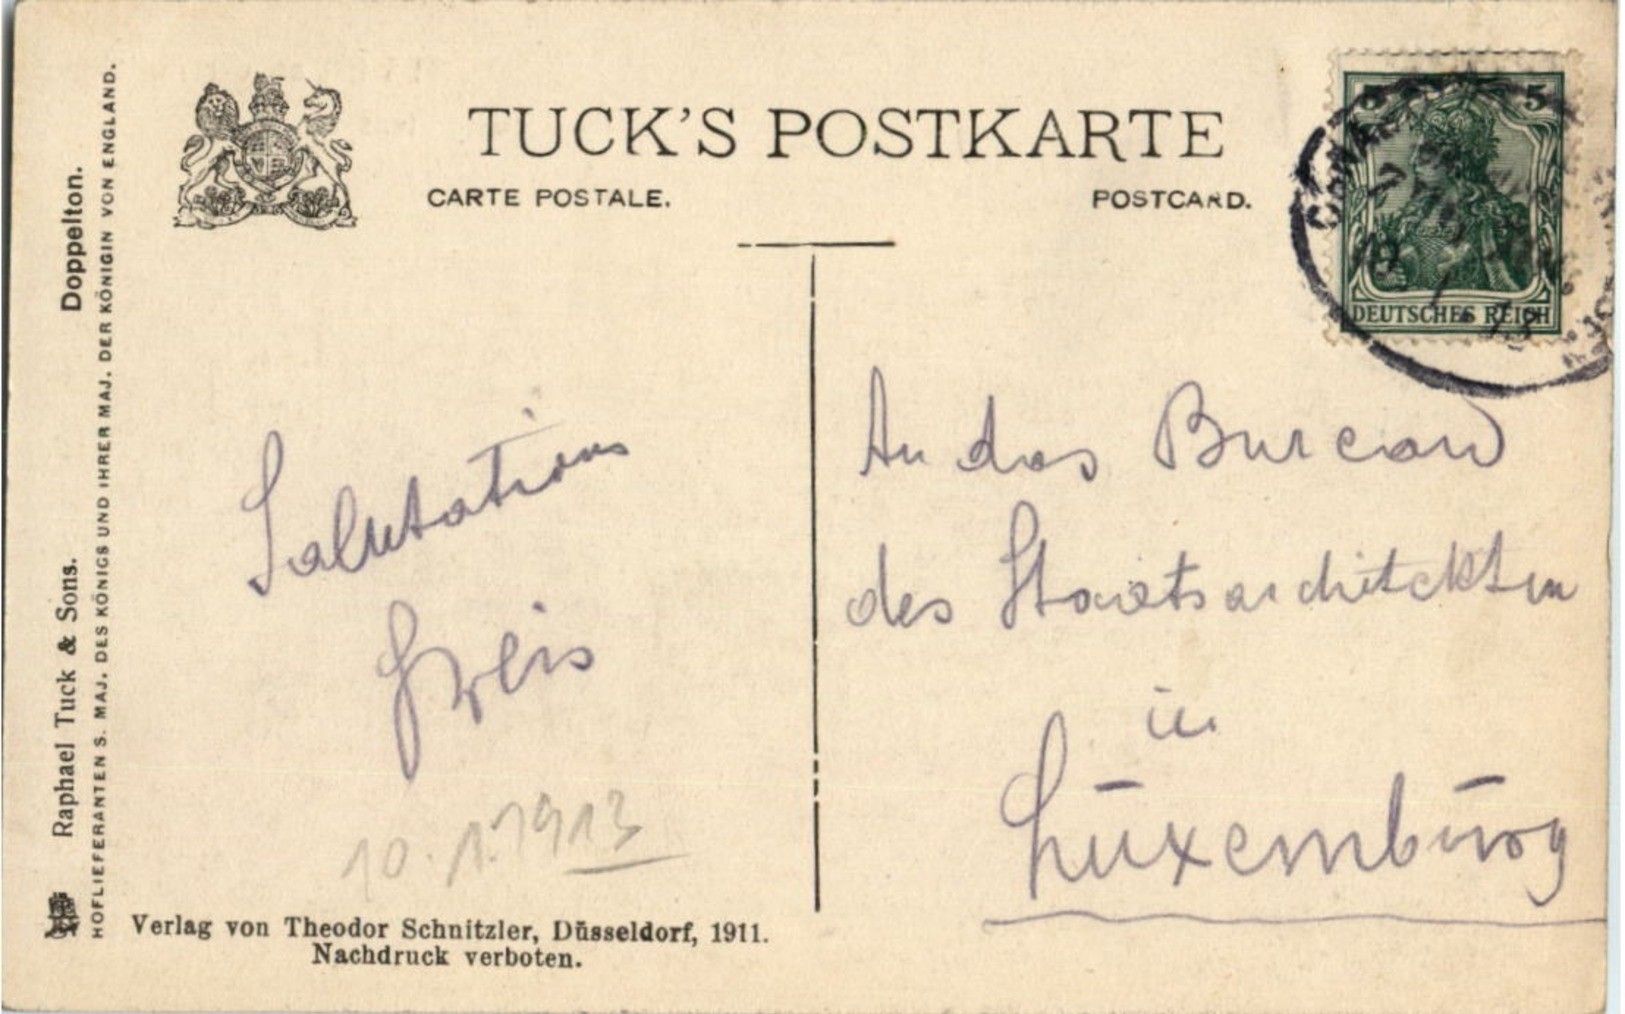 TUCK'S POSTKARTE
CARTE POSTALE.
POSTCARD.
Doppelton.
Raphael Tuck & Sons.
HOFLIEFERANTEN S. MAJ. DES KÖNIGS UND IHRER MAJ. DER KÖNIGIN VON ENGLAND.
5
DEUTSCHES REICH
Salutations
10.1.1913
An das Bureau
des Staatsarchitekten
in
Luxemburg
Verlag von Theodor Schnitzler, Düsseldorf, 1911.
Nachdruck verboten.